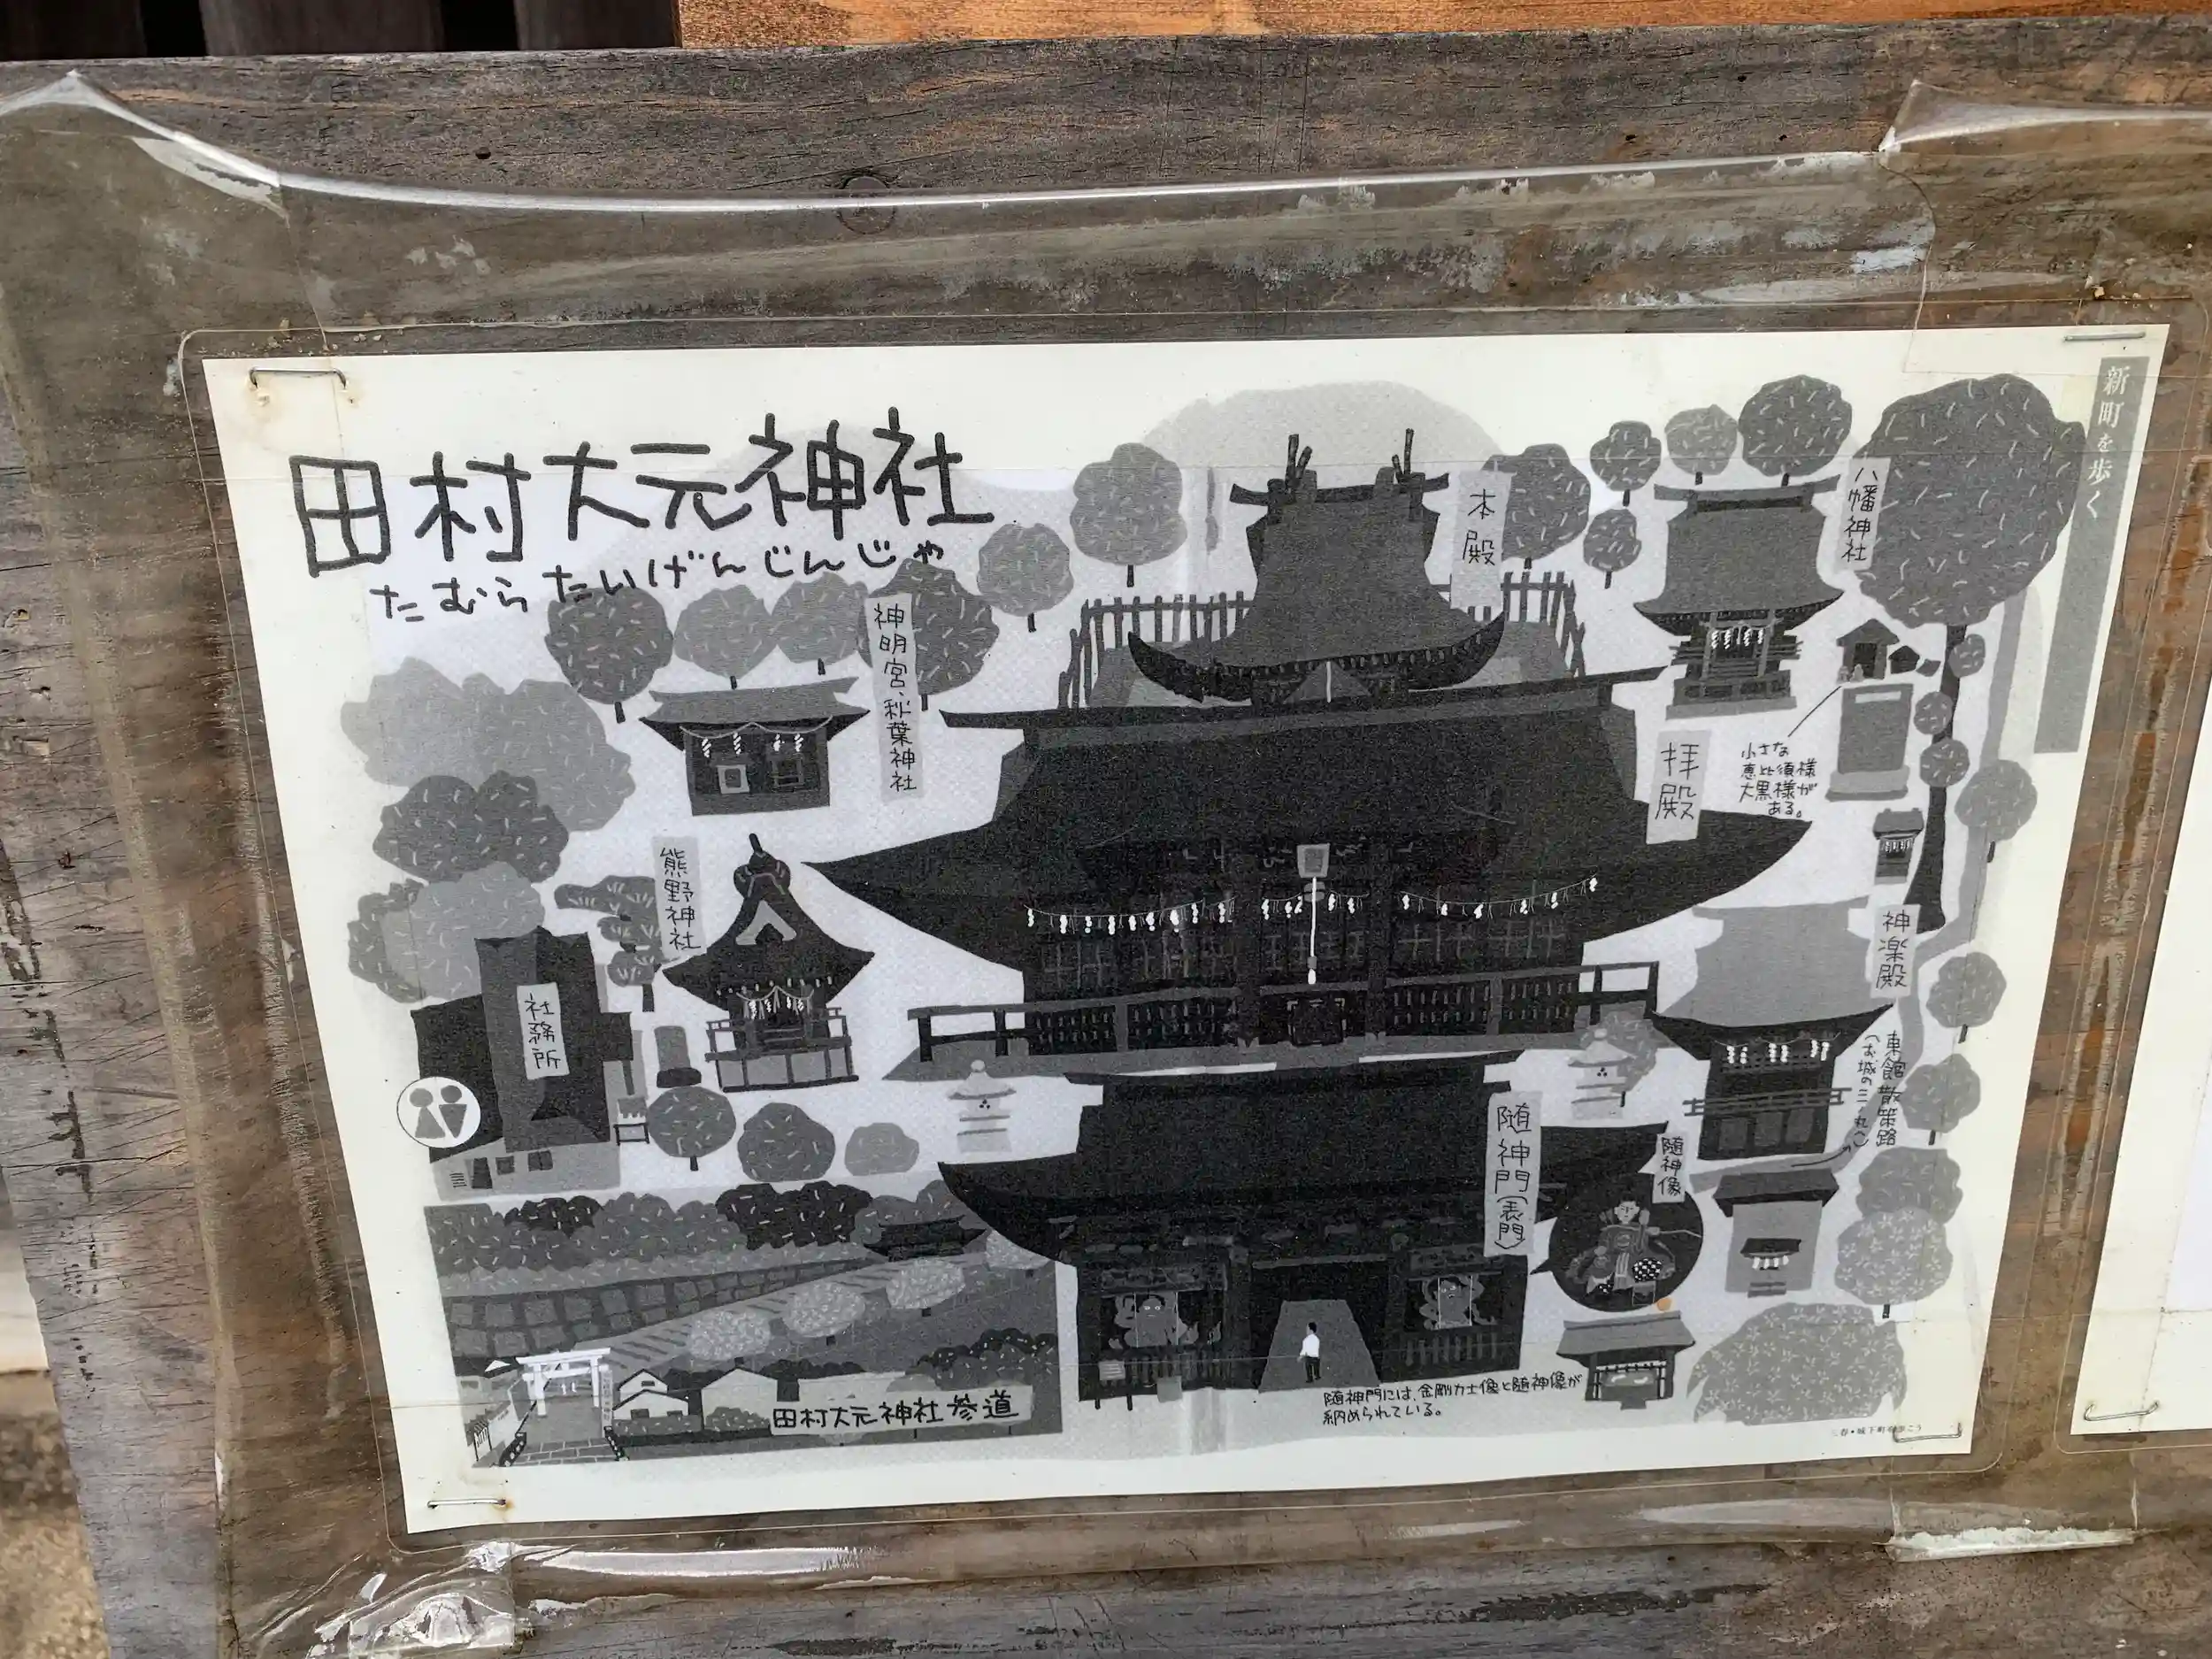 新町を歩く
田村大元神社
たむら たいげんじんじゃ
本殿
八幡神社
神明宮、秋葉神社
拝殿
小さな
恵比須様
大黒様が
ある。
熊野神社
神楽殿
社務所
東館散策路
(お城の三ノ丸)
随神門(表門)
随神像
随神門には、金剛力士像と随神像が
納められている。
田村大元神社参道